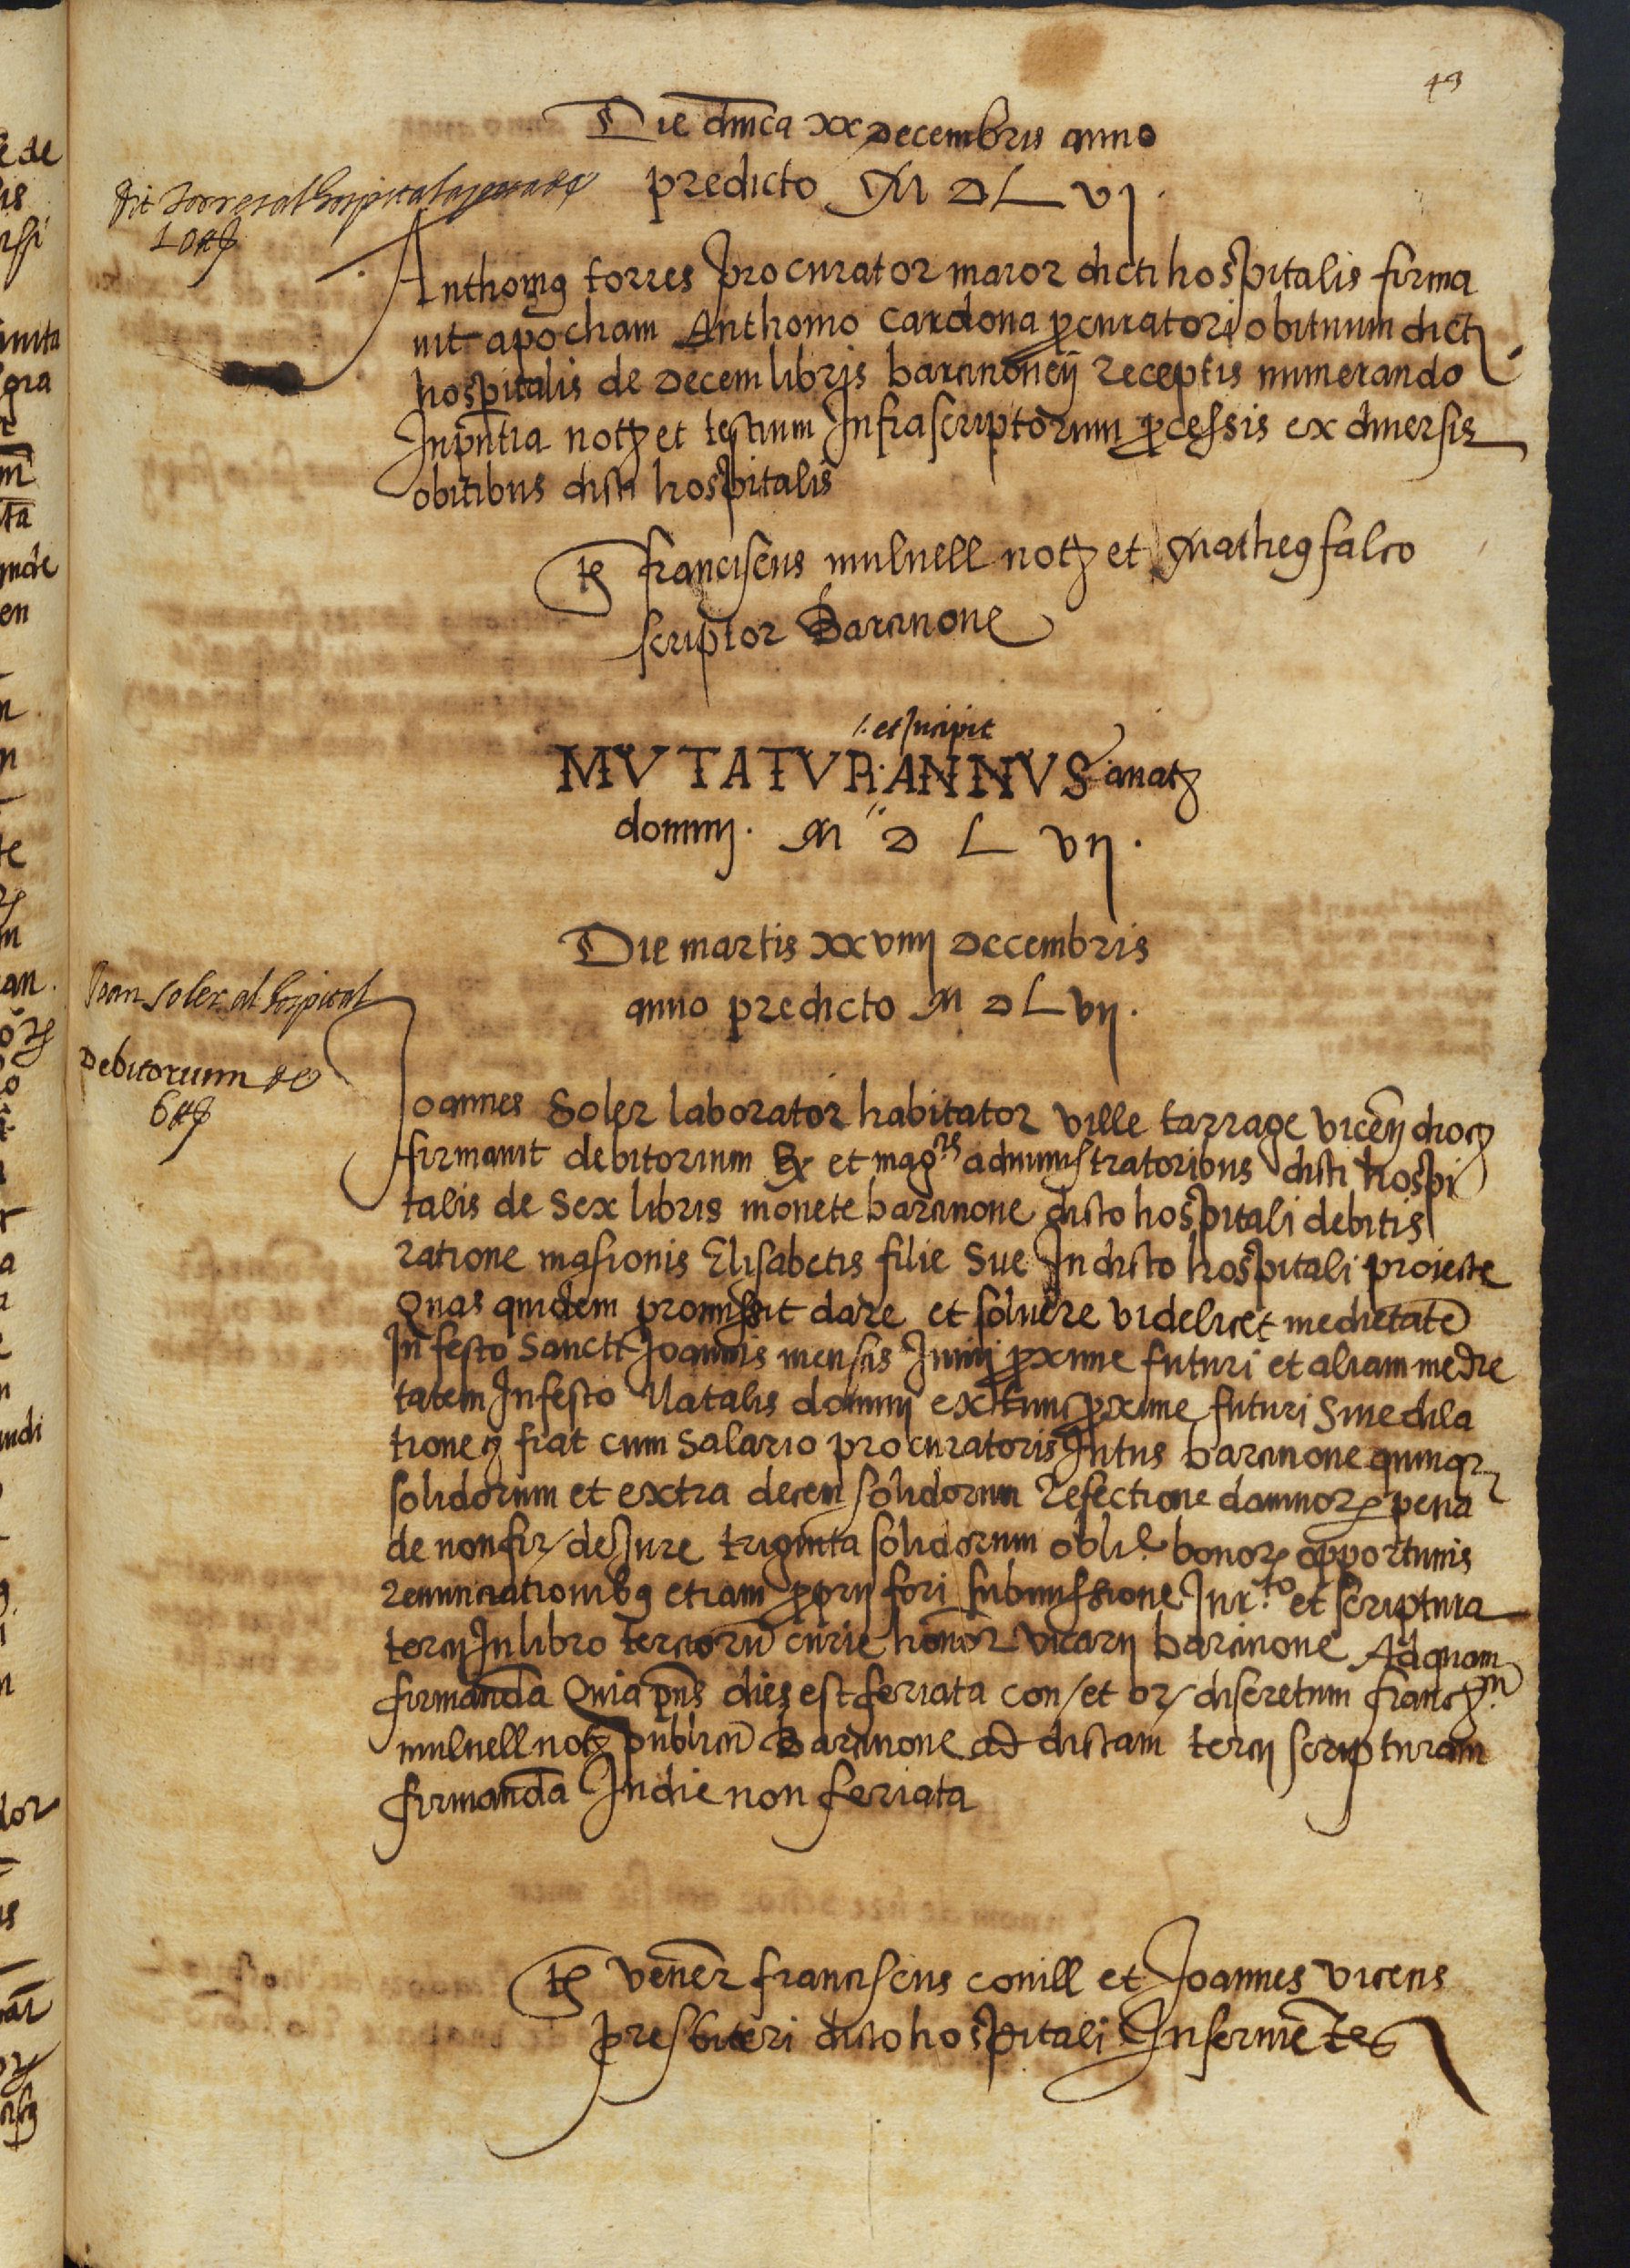 43
Die dnica xx Decembris anno
predicto M D L vj.
dit torres al hospital
10 ₶
Anthonius torres procurator maior dicti hospitalis firma
uit apocham Anthonio Cardona procuratori obituum dicti
hospitalis de Decem libris barcinonen receptis numerando
In pntia not et testium Infrascriptorum processis ex diuersis
obitibus dicti hospitalis
ts franciscus muluell not et Matheus falco
scriptor Barcinone
/. et Incipit
MVTATVR ANNVS a nat
domini. M D L vij.
Die martis xxviiij Decembris
anno predicto M D L vij.
Joan soler al hospital
Debitorium de
6 ₶
Joannes Soler laborator habitator ville tarrage vicen dioc
firmauit debitorium et mag.cis administratoribus dicti hospi
talis de Sex libris monete barcinone dicto hospitali debitis
ratione masionis Elisabetis filie Sue In dicto hospitali proiecte
Quas quidem promissit dare et soluere videlicet medietate
In festo Sancti Joannis mensis Junij proxime futuri et aliam medie
tatem In festo Natalis domini extunc proxime futuri Sine dila
tione fiat cum Salario procuratoris Intus barcinone quinqz
solidorum et extra decem solidorum Refectione damnorum pena
de non fir/ de Jure triginta solidorum obli.e bonorum opportunis
renunciationibus etiam proprij fori submissione Jur.to et scriptura
tercij In libro terciorum curie honor vicarij barcinone Ad quam
firmanda Quia pns dies est feriata con/ et or/ discretum franc.m
muluell not publicu Barcinone ad dictam tercij scripturam
firmanda In die non feriata
ts vener franciscus conill et Joannes vicens
presbiteri dicto hospitali Inseruietes